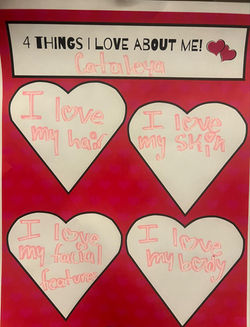 4 THINGS I LOVE ABOUT ME!
Cataleya
I love
my hair
I love
my skin
I love
my facial
features
I love
my body